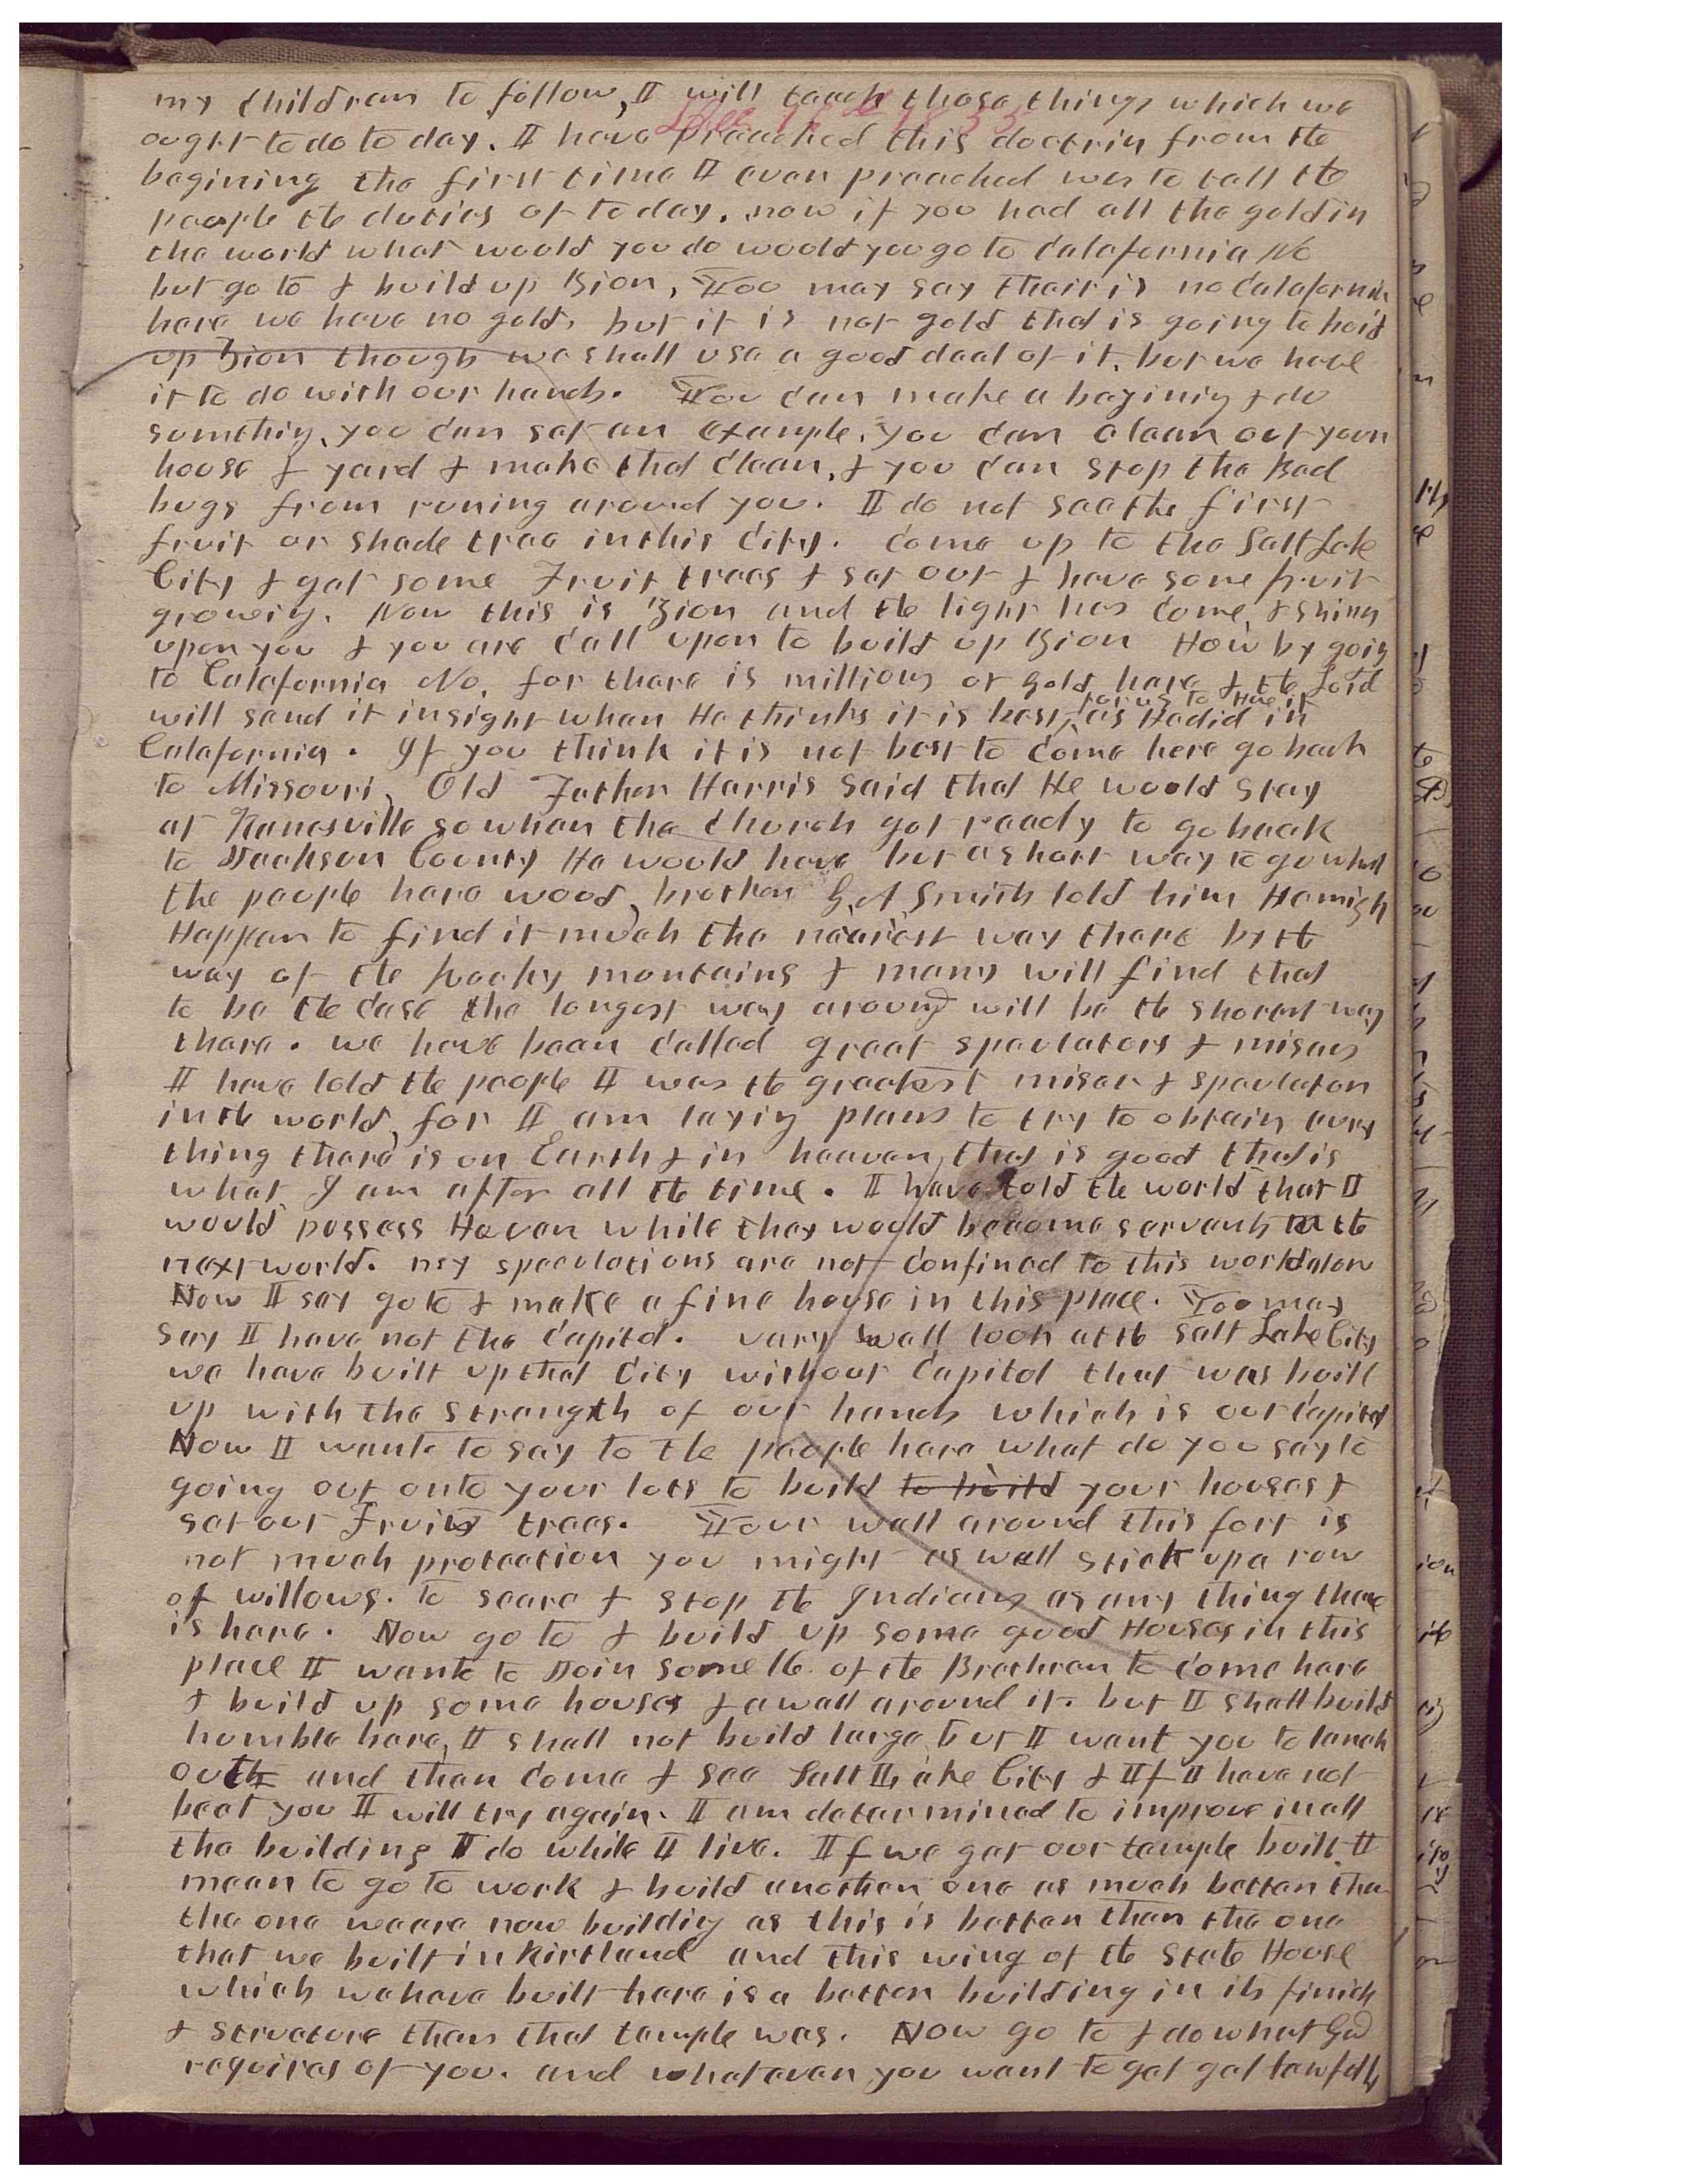 my children to follow, I will teach those things which we
Dec 16th 1855
ought to do to day. I have preached this doctrin from the
begining the first time I ever preached was to tell the
people the duties of to day. now if you had all the gold in
the world what would you do would you go to Calafornia No
but go to & build up Zion, You may say thair is no Calafornia
here we have no gold, but it is not gold that is going to boild
up Zion though we shall use a good deal of it. but we have
it to do with our hands. You can make a begining & do
somthing, you can set an example. you can clean out your
house & yard & make that clean, & you can stop the Bed
bugs from runing around you. I do not see the first
fruit or shade tree in this City. Come up to the Salt Lake
City & get some Fruit trees & set out & have some fruit
growing. Now this is Zion and the light has come & shins
upon you & you are call upon to build up Zion How by going
to Calafornia No, for there is millions of gold here & the Lord
for us to Have it
will send it in sight when He thinks it is best, as He did in
Calafornia. If you think it is not best to come here go back
to Missouri, Old Father Harris said that He would stay
at Kanesville so when the Church got ready to go back
to Jackson County He would have but a short way to go what
the people here wood, brother G. A Smith told him He migh
Happen to find it much the nearest way there by the
way of the Rocky mountains & many will find that
to be the case the longest way around will be the shortest way
there. we have been called great speculators & misers
I have told the people I was the greatest miser & speculator
in the world, for I am laying plans to try to obtain every
thing there is on Earth & in heaven, that is good that is
what I am after all the time. I have told the world that I
would possess Heaven while they would become servants in the
next world. my speculations are not confined to this world alon
Now I say go to & make a fine house in this place. You may
say I have not the Capitol. very well look at the Salt Lake City
we have built up that City without Capitol that was built
up with the strength of our hands which is our Capitol
Now I wante to say to the people here what do you say to
going out onto your lots to build to build your houses &
set out Fruit trees. Your wall around this fort is
not much protection you might as well stick up a row
of willows. to scare & stop the Indians as any thing there
is here. Now go to & build up some good Houses in this
place I wante to Join some 16 of the Brethren to come here
& build up some houses & a wall around it. but I shall build
humble here, I shall not build large but I want you to lanch
outt and then come & see Salt Lake City & If I have not
beat you I will try again. I am determined to improve in all
the building I do while I live. If we get our temple built I
mean to go to work & build another one as much better than
the one we are now building as this is better than the one
that we built in Kirtland and this wing of the State House
which we have built here is a better building in its finish
& structure than that temple was. Now go to & do what God
requires of you. and whatever you want to get get lawfully